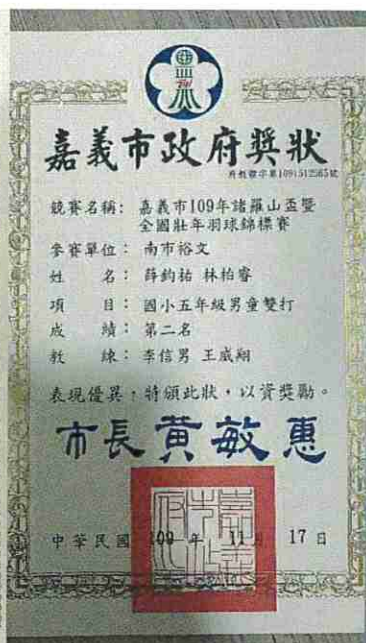 嘉義市政府獎狀
府教體字第1091512565號
競賽名稱：嘉義市109年諸羅山盃暨
全國壯年羽球錦標賽
參賽單位：南市裕文
姓名：薛鈞祐 林柏睿
項目：國小五年級男童雙打
成績：第二名
教練：李信男 王威翔
表現優異，特頒此狀，以資獎勵。
市長 黃敏惠
中華民國 109 年 11 月 17 日